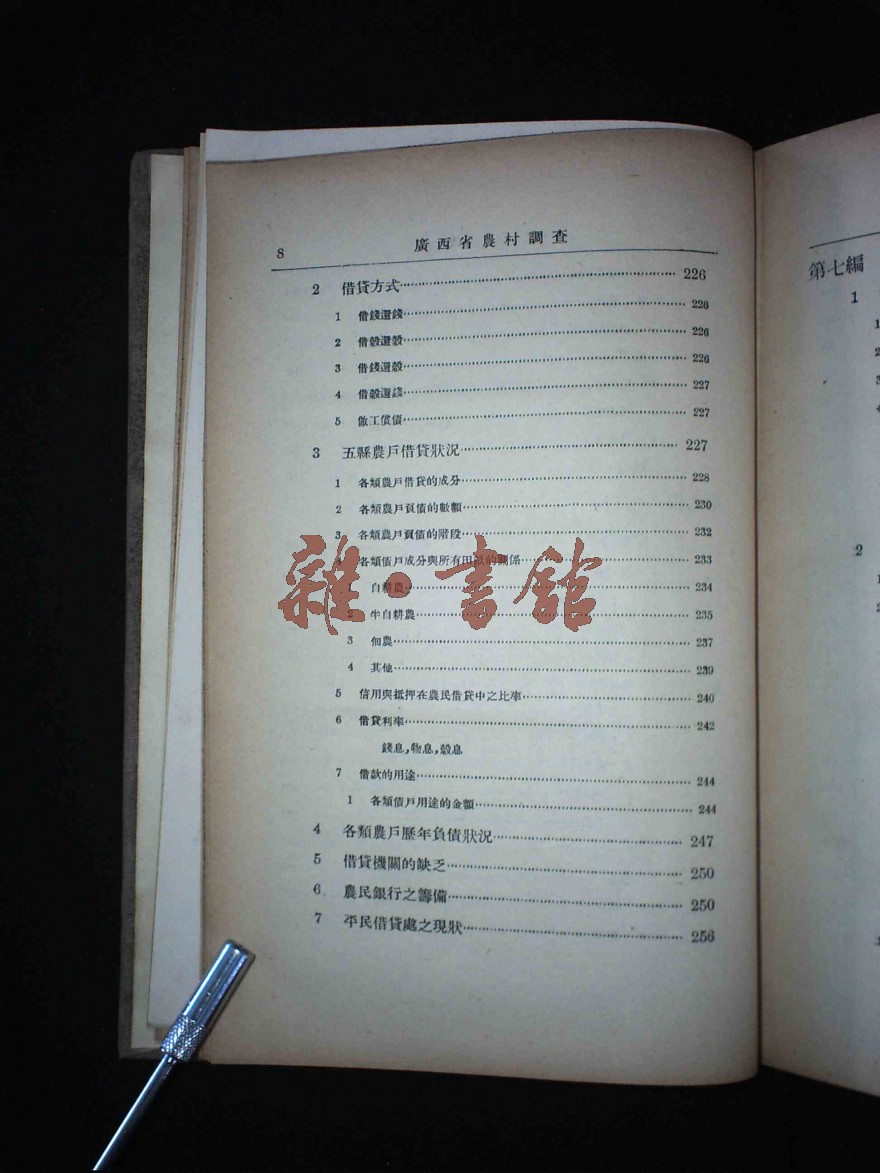 8 廣西省農村調查
2 借貸方式 226
1 借錢還錢 226
2 借穀還穀 226
3 借錢還穀 226
4 借穀還錢 227
5 做工償債 227
3 五縣農戶借貸狀況 227
1 各類農戶借貸的成分 228
2 各類農戶負債的數額 230
3 各類農戶負債的階段 232
4 各類債戶成分與所有田畝的關係 233
1 自耕農 234
2 半自耕農 235
3 佃農 237
4 其他 239
5 信用與抵押在農民借貸中之比率 240
6 借貸利率 242
錢息,物息,穀息
7 借款的用途 244
1 各類債戶用途的金額 244
4 各類農戶歷年負債狀況 247
5 借貸機關的缺乏 250
6 農民銀行之籌備 250
7 平民借貸處之現狀 256
雜·書館
第七編
1
1
2
3
4
2
1
2